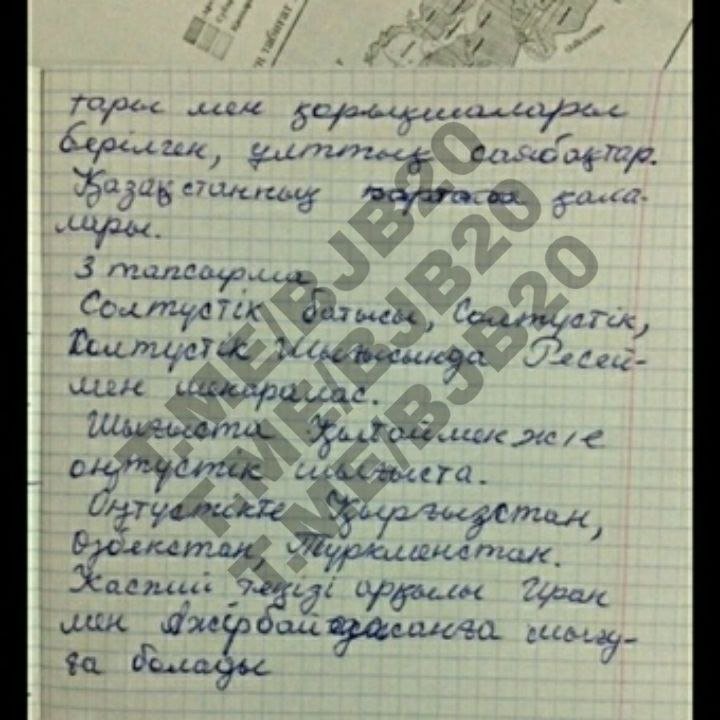 тары мен қорықшалары
берілген, ұлттық саябақтар.
Қазақстанның қала-
лары.
3 тапсырма
Солтүстік батысы, Солтүстік,
Солтүстік Шығысында Ресей-
мен шекаралас.
Шығыста Қытаймен және
оңтүстік шығыста.
Оңтүстікте Қырғызстан,
Өзбекстан, Түркменстан.
Каспий теңізі арқылы Иран
мен Әзірбайджанға шығу-
ға болады
T.ME/BJB20
T.ME/BJB20
T.ME/BJB20